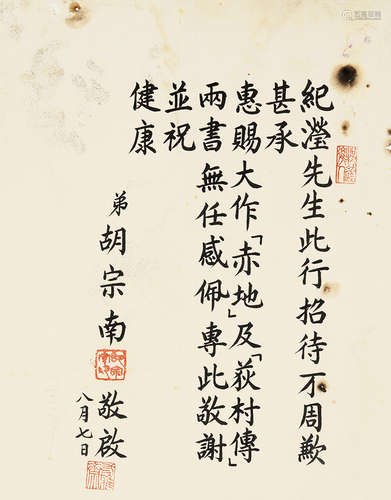 紀瀅先生此行招待不周歉
甚承
惠賜大作「赤地」及「荻村傳」
兩書無任感佩專此敬謝
並祝
健康
弟胡宗南敬啟
八月七日